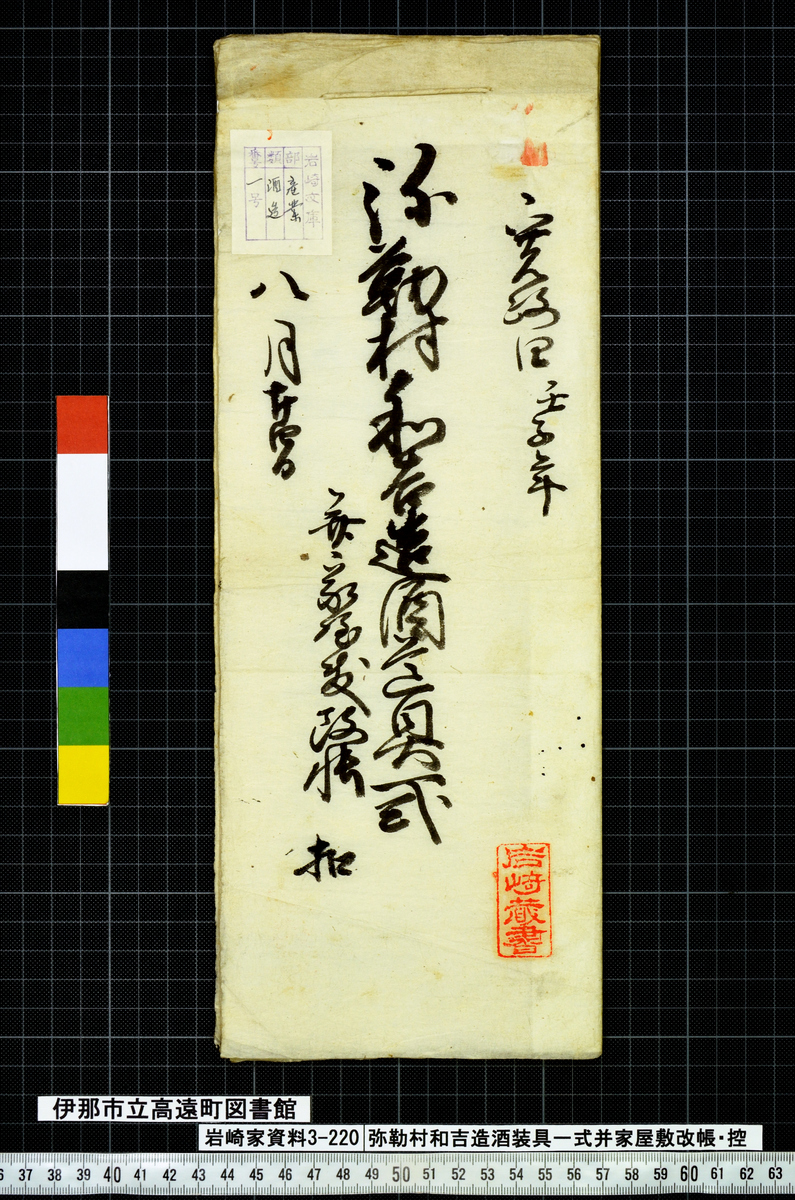 寛政四壬子年
弥勒村和吉造酒道具一式
并家屋敷改帳 扣
八月
岩崎文庫
部 産業
類 酒造
一号
岩崎蔵書
伊那市立高遠町図書館
岩崎家資料3-220 弥勒村和吉造酒装具一式并家屋敷改帳・控
37 38 39 40 41 42 43 44 45 46 47 48 49 50 51 52 53 54 55 56 57 58 59 60 61 62 63